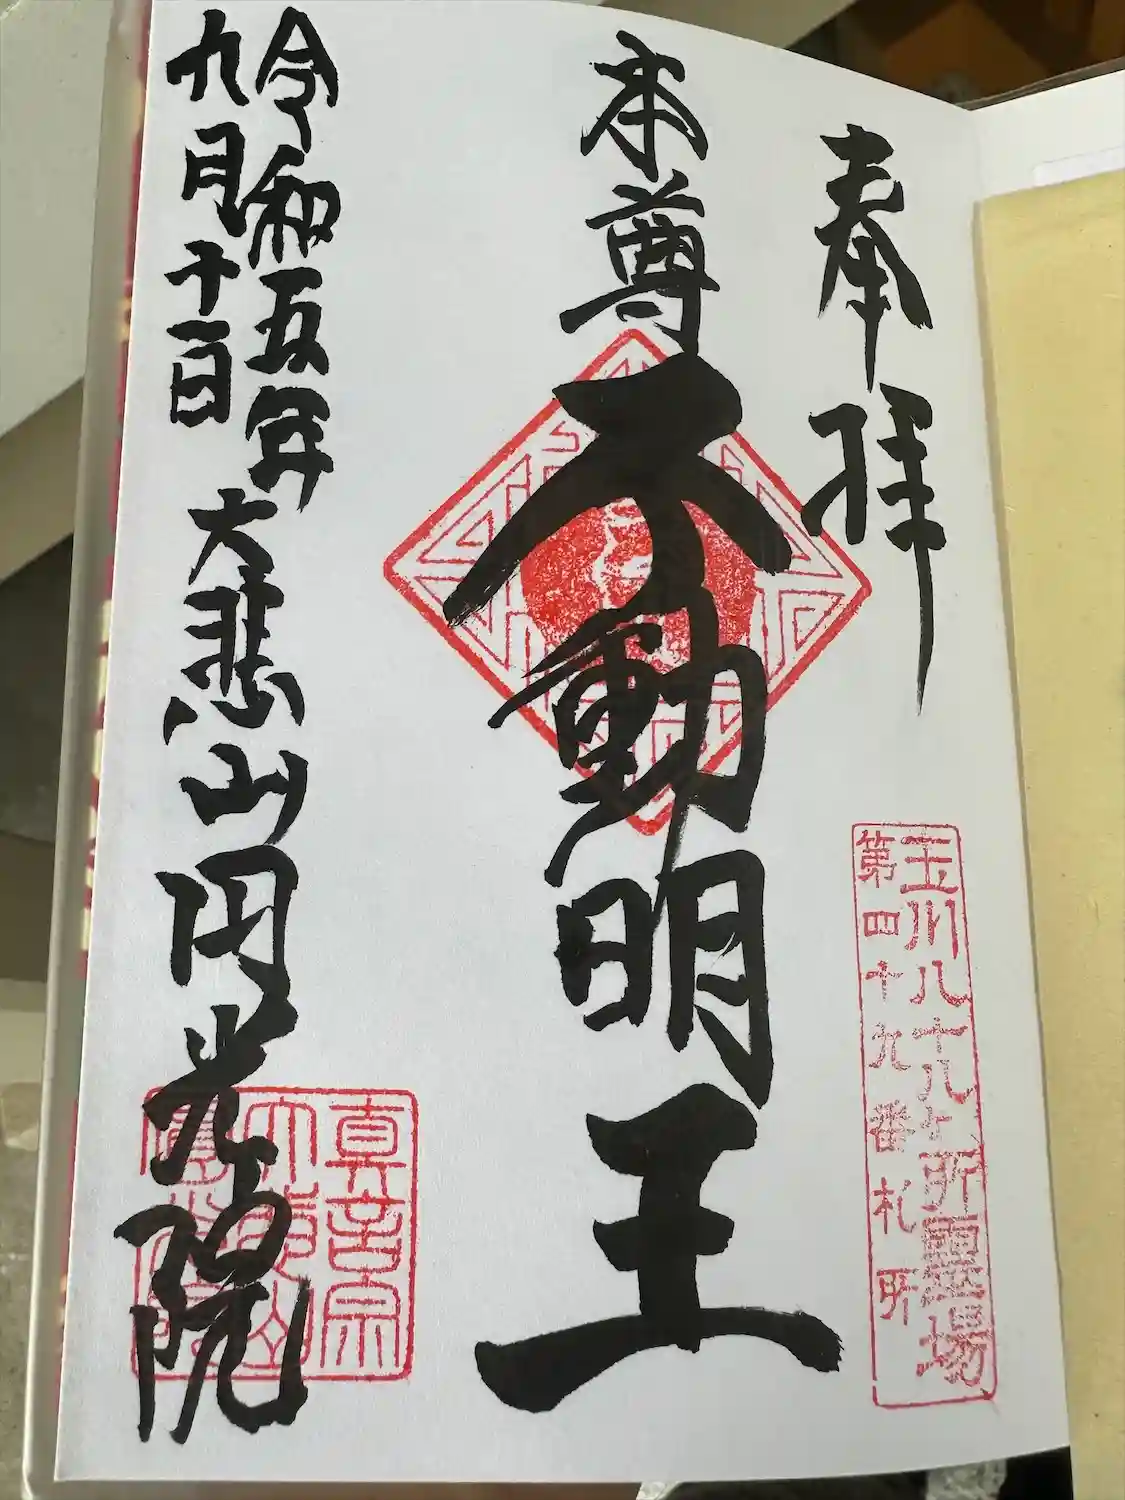 奉拝
玉川八十八ヶ所霊場
第四十九番札所
本尊
不動明王
令和五年
九月十一日
大悲山円光院
真言宗